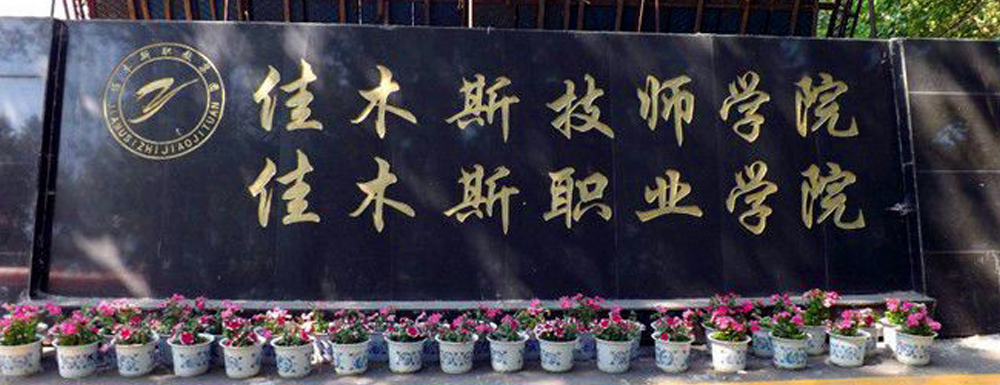 佳木斯职教集团
JIAMUSIZHIJIAOJITUAN
佳木斯技师学院
佳木斯职业学院